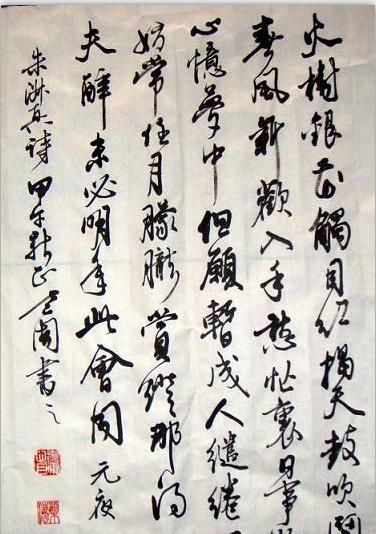 火樹銀花觸目紅揭天鼓吹鬧
春風新歡入手愁忙裏旧事
心憶夢中但願暫成人繾綣
妨常任月朦朧賞燈那得
夫醉未必明年此會同 元夜
朱淑真詩 甲午新正 閣書之